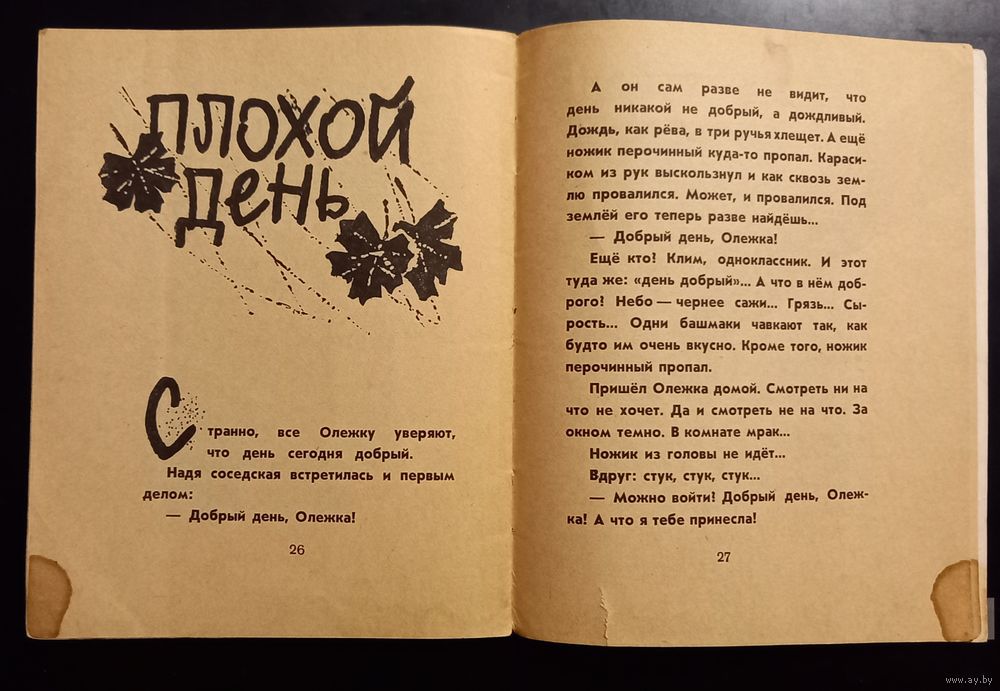 ПЛОХОЙ
День
Странно, все Олежку уверяют,
что день сегодня добрый.
Надя соседская встретилась и первым
делом:
— Добрый день, Олежка!
26
А он сам разве не видит, что
день никакой не добрый, а дождливый.
Дождь, как рёва, в три ручья хлещет. А ещё
ножик перочинный куда-то пропал. Караси-
ком из рук выскользнул и как сквозь зем-
лю провалился. Может, и провалился. Под
землёй его теперь разве найдёшь...
— Добрый день, Олежка!
Ещё кто? Клим, одноклассник. И этот
туда же: «день добрый»... А что в нём доб-
рого? Небо — чернее сажи... Грязь... Сы-
рость... Одни башмаки чавкают так, как
будто им очень вкусно. Кроме того, ножик
перочинный пропал.
Пришёл Олежка домой. Смотреть ни на
что не хочет. Да и смотреть не на что. За
окном темно. В комнате мрак...
Ножик из головы не идёт...
Вдруг: стук, стук, стук...
— Можно войти? Добрый день, Олеж-
ка! А что я тебе принесла!
27
www.ay.by